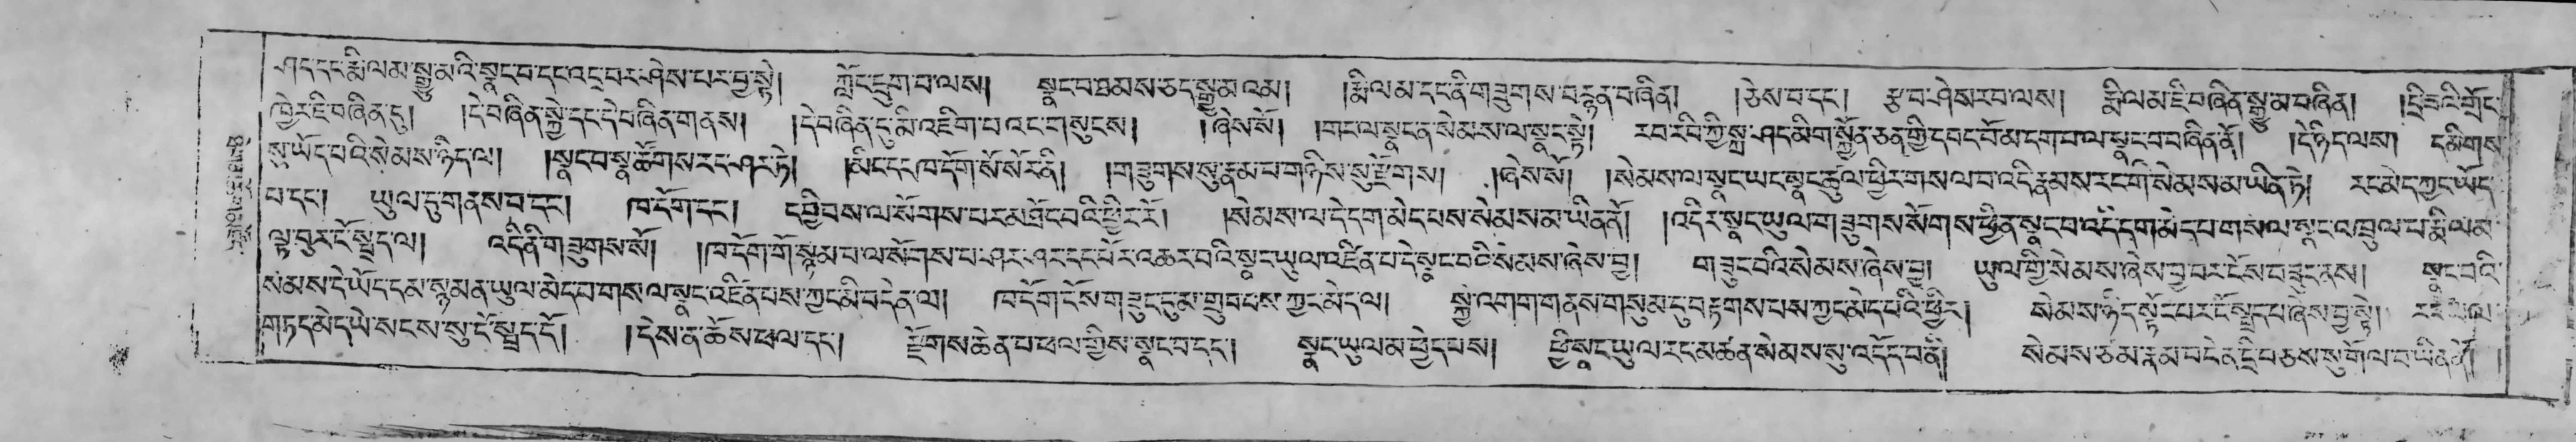 ཤད་དང་རྨི་ལམ་སྒྱུ་མའི་སྣང་བ་དང་འདྲ་བར་ཤེས་པར་བྱ་སྟེ། ཀློང་དྲུག་པ་ལས། སྣང་བ་ཐམས་ཅད་སྒྱུ་མ་འམ། །རྨི་ལམ་དང་ནི་གཟུགས་བརྙན་བཞིན། །ཅེས་པ་དང་། རྩ་བ་ཤེས་རབ་ལས། རྨི་ལམ་ཇི་བཞིན་སྒྱུ་མ་བཞིན། །དྲི་ཟའི་གྲོང་
ཁྱེར་ཇི་བཞིན་དུ། །དེ་བཞིན་སྐྱེ་དང་དེ་བཞིན་གནས། །དེ་བཞིན་དུ་མི་འཇིག་པ་འང་གསུངས། །ཞེས་སོ། །གང་ལ་སྣང་ན་སེམས་ལ་སྣང་སྟེ། རབ་རིབ་ཀྱི་སྐྲ་ཤད་མིག་སྐྱོན་ཅན་གྱི་དབང་པོ་མ་དག་པ་ལ་སྣང་བ་བཞིན་ནོ། །དེ་ཉིད་ལས། དམིགས་
སུ་ཡོད་པའི་སེམས་ཉིད་ལ། །སྣང་བ་སྣ་ཚོགས་རང་ཤར་ཏེ། །མིང་དང་ཁ་དོག་སོ་སོར་ནི། །གཟུགས་སུ་རྣམ་པ་གཉིས་སུ་རྫོགས། །ཞེས་སོ། །སེམས་ལ་སྣང་ཡང་སྣང་ཚུལ་ཕྱིར་གསལ་བ་འདི་རྣམས་རང་གི་སེམས་མ་ཡིན་ཏེ། རང་མེད་ཀྱང་ཡོད་
པ་དང་། ཡུལ་དུ་གནས་པ་དང་། ཁ་དོག་དང་། དབྱིབས་ལ་སོགས་པར་མཐོང་བའི་ཕྱིར་རོ། །སེམས་ལ་དེ་དག་མེད་པས་སེམས་མ་ཡིན་ནོ། །འདིར་སྣང་ཡུལ་གཟུགས་སོགས་ཕྱིན་སྣང་བ་འདི་དག་མེད་པ་གསལ་སྣང་འཁྲུལ་པ་རྨི་ལམ་
ལྟ་བུར་ངོ་སྤྲད་ལ། འདི་ནི་གཟུགས་སོ། །ཁ་དོག་གོ་སྙམ་པ་ལ་སོགས་པ་ཤར་ཤར་དང་པོར་འཆར་བའི་སྣང་ཡུལ་འཛིན་པ་དེ་སྣང་བའི་སེམས་ཞེས་བྱ། གཟུང་བའི་སེམས་ཞེས་བྱ། ཡུལ་གྱི་སེམས་ཞེས་བྱ་བར་ངོས་བཟུང་ནས། སྣང་བའི་
སེམས་དེ་ཡོད་དམ་སྙམ་ན་ཡུལ་མེད་པ་གསལ་སྣང་འཛིན་པས་ཀྱང་མི་བདེན་ལ། ཁ་དོག་ངོས་གཟུང་དུ་མ་གྲུབ་པས་ཀྱང་མེད་ལ། སྐྱེ་འགག་གནས་གསུམ་དུ་བརྟགས་པས་ཀྱང་མེད་པའི་ཕྱིར། སེམས་ཉིད་སྟོང་པར་ངོ་སྤྲད་པ་ཞེས་བྱ་སྟེ།
གཏད་མེད་ཡེ་སངས་སུ་ངོ་སྤྲད་དོ། །དེས་ན་ཆོས་ཕལ་དང་། རྫོགས་ཆེན་པ་ཕལ་གྱིས་སྣང་བ་དང་། སྣང་ཡུལ་མ་ཕྱེད་པས། ཕྱི་སྣང་ཡུལ་རང་མཚན་སེམས་སུ་འདོད་པ་ནི། སེམས་ཙམ་རྣམ་བདེན་དྲི་བཅས་སུ་གོལ་བ་ཡིན་ནོ། །